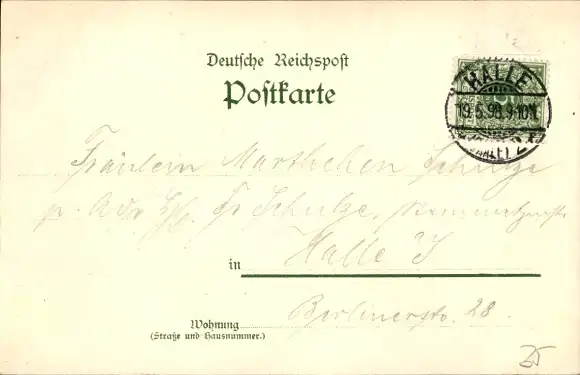 Deutsche Reichspost
Postkarte
HALLE
19.5.98.9-10V.
Fräulein Marthchen Schulze
p. Adr. Fr Schulze,
in Halle S
Berlinerstr. 28.
Wohnung
(Straße und Hausnummer.)
25